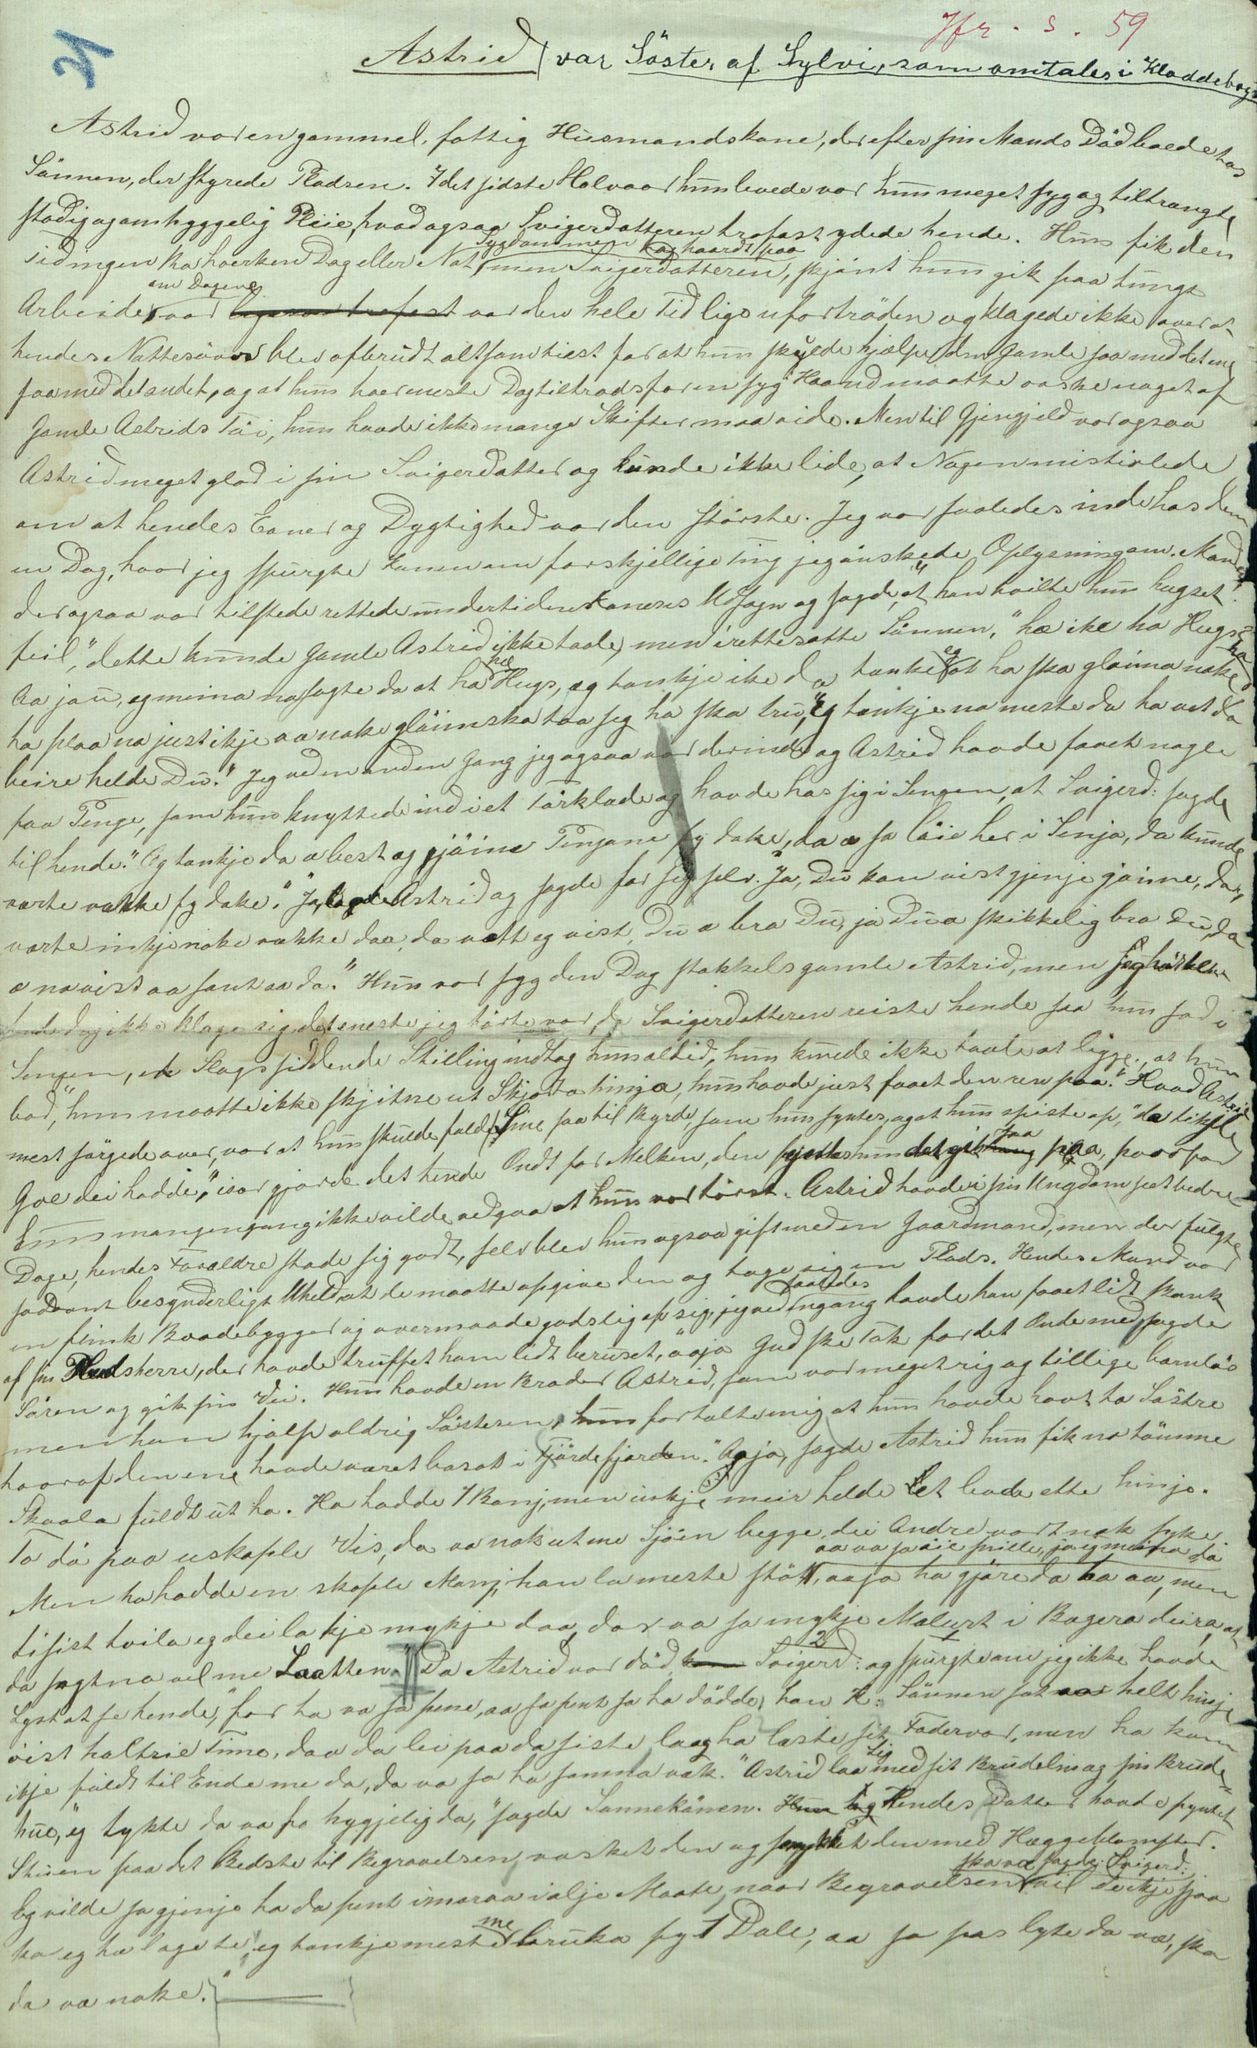 21
Jfr. s. 59
Astrid (var Søster af Sylvi, som omtales i Kladdebog
Astrid var en gammel, fattig Husmandskone, der efter sin Mands Død boede hos
Sønnen, der styrede Pladsen. I det sidste Halvaar hun levede var hun meget syg og tiltrængte
stadig og omhyggelig Pleie, hvad ogsaa Svigerdatteren trofast ydede hende. Hun fik den
hverken Dag eller Nat, Sygdommen tog haardt paa men Svigerdatteren, skjønt hun gik paa tungt
Arbeide om Dagene, var ligesaa trofast var den hele Tid lige ufortrøden og klagede ikke over at
hendes Nattesøvn blev afbrudt alt som tiest for at hun skulde hjælpe den Gamle saa med det ene
saa med det andet, og at hun hver eneste Dag tiltrods for en syg Haand maatte vaske noget af
gamle Astrids Tøi, hun havde ikke mange Skifter maa vide. Men til Gjengjeld var ogsaa
Astrid meget glad i sin Svigerdatter og kunde ikke lide, at Nogen mistvilede
om at hendes Evner og Dygtighed var den største. Jeg var saaledes inde hos dem
en Dag, hvor jeg spurgte Konen om forskjellige Ting jeg ønskede Oplysning om. Manden
der ogsaa var tilstede rettede undertiden Konens Udsagn og sagde, "at han tvilte hun hugset
feil," dette kunde gamle Astrid ikke taale, men irettesatte Sønnen, "hæ ikke ho Hugs,
Aa jau, eg meina no sagte da at ho hæ Hugs, eg tænkje ike da tænke eg at ho ska gløima noke
ho plaa no just ikje va noke gløimska taa seg ho ska tru, eg tænkje no meste da ho vet da
beire helde Du." Jeg ved en anden Gang jeg ogsaa var derinde og Astrid havde faaet nogle
faa Penge, som hun knyttede ind i et Tørklæde og havde hos sig i Sengen, at Svigerd: sagde
til hende: "Eg tænkje da æ best eg gjøime Pengane fy dake, da æ so løie her i Senja, da kunde
vørte vække fy dake." Ja, Astrid og sagde for sig selv. "Ja, Du kan vist gjenje gøime, dar
vørte inkje noke vække daa, da vett eg vist, Du æ bra Du, ja Du æ skikkelig bra Du, da
æ no vist aa sant aa da." Hun var syg den Dag stakkels gamle Astrid, men jeg hørte
hende dog ikke klage sig, det eneste jeg hørte var, da Svigerdatteren reiste hende saa hun sad i
Sengen, en Slags siddende Stilling indtog hun altid, hun kunde ikke taale at ligge, at hun
bad, "hun maatte ikke skjitne ut Skjorta hinja, hun havde just faaet den ren paa." Hvad Astrid
mest sørgede over, var at hun skulde falde Sine saa til Byrde, som hun syntes, og at hun spiste op, "da litle
Goe dei hadde," især gjorde det hende Ondt for Melken, den syntes hun det gik saa paa, hvorfor
hun mangengang ikke vilde vedgaa at hun var tørst. Astrid havde i sin Ungdom seet bedre
Dage, hendes Forældre stode sig godt, selv blev hun ogsaa gift med en Gaardmand, men der fulgte
saadant besynderligt Uheld, at de maatte opgive den og tage sig en Plads. Hendes Mand var
en flink Baadebygger og overmaade godslig af sig, jeg ved engang saaledes havde han faaet lidt Skank
af sin Husherre, der havde truffet ham lidt beruset, "aaja Gud ske Tak for det Onde med, sagde
Søren og gik sin Vei. Hun havde en Broder Astrid, som var meget rig og tillige barnløs
men han hjalp aldrig Søsteren, hun fortalte mig at hun havde havt to Søstre
hvoraf den ene havde været bosat i Fjørdefjorden. "Aaja, sagde Astrid hun fik no tømme
Skaala fuldt ut ho. Ho hadde 7 Banj, men inkje meir helde et leva ette hinje.
To dø paa uskaple Vis, da va nok ut me Sjøen begge, dei Andre vart nok syke
aa va so sie sille, ja eg meina da
Men ho hadde en skaple Manj, han la meste støtt, aaja ho gjøre da ho aa, men
tisist tvila eg dei la kje mykje daa, dar va so mykje Malurt i Bægera deira, at
da sogtna vel me Laatten." Da Astrid var død, Svigerd: og spurgte om jeg ikke havde
Lyst at se hende, "for ho va so pene, aa so pent so ho dødde, han H. Sønnen sat helt hinje
vist haltrie Time, daa da lei paa da siste laag ho læste sit Fadervor, men ho kom
ikje fuldt til Ende me da, da va so ho somna væk." Astrid laa Lig med sit Brudelin og sin Brude-
hue, "eg tykte da va so hyggjelig da," sagde Sønnekonen. Hendes Datter havde pyntet
Stuen paa det Bedste til Begravelsen, vasket den og pyntet den med Hæggeblomster.
Eg vilde so gjenje ha da pent imøræ i alje Maate, naar Begravelsen ska væ, sagde Svigerd: vil deikje sjaa
ka eg hæ laga te, eg tænkje meste me bruka fy 1 Dale, aa so pas lyte da væ, ska
da væ noke."